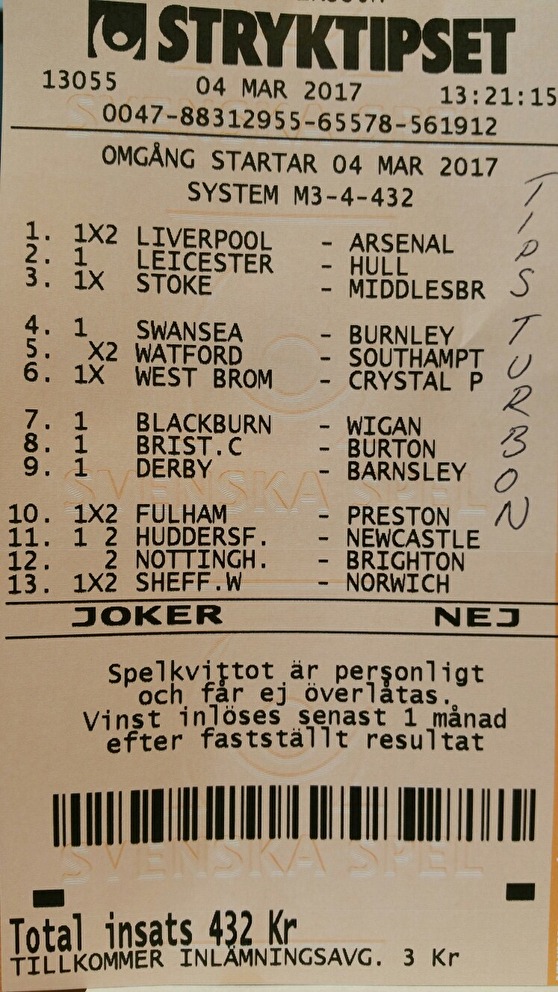 STRYKTIPSET
13055 04 MAR 2017 13:21:15
0047-88312955-65578-561912
OMGÅNG STARTAR 04 MAR 2017
SYSTEM M3-4-432
1. 1X2 LIVERPOOL - ARSENAL
2. 1 LEICESTER - HULL
3. 1X STOKE - MIDDLESBR
4. 1 SWANSEA - BURNLEY
5. X2 WATFORD - SOUTHAMPT
6. 1X WEST BROM - CRYSTAL P
7. 1 BLACKBURN - WIGAN
8. 1 BRIST.C - BURTON
9. 1 DERBY - BARNSLEY
10. 1X2 FULHAM - PRESTON
11. 1 2 HUDDERSF. - NEWCASTLE
12. 2 NOTTINGH. - BRIGHTON
13. 1X2 SHEFF.W - NORWICH
TIPSTURBON
JOKER NEJ
Spelkvittot är personligt
och får ej överlåtas.
Vinst inlöses senast 1 månad
efter fastställt resultat
SVENSKA SPEL
SVENSKA SPEL
Total insats 432 Kr
TILLKOMMER INLÄMNINGSAVG. 3 Kr